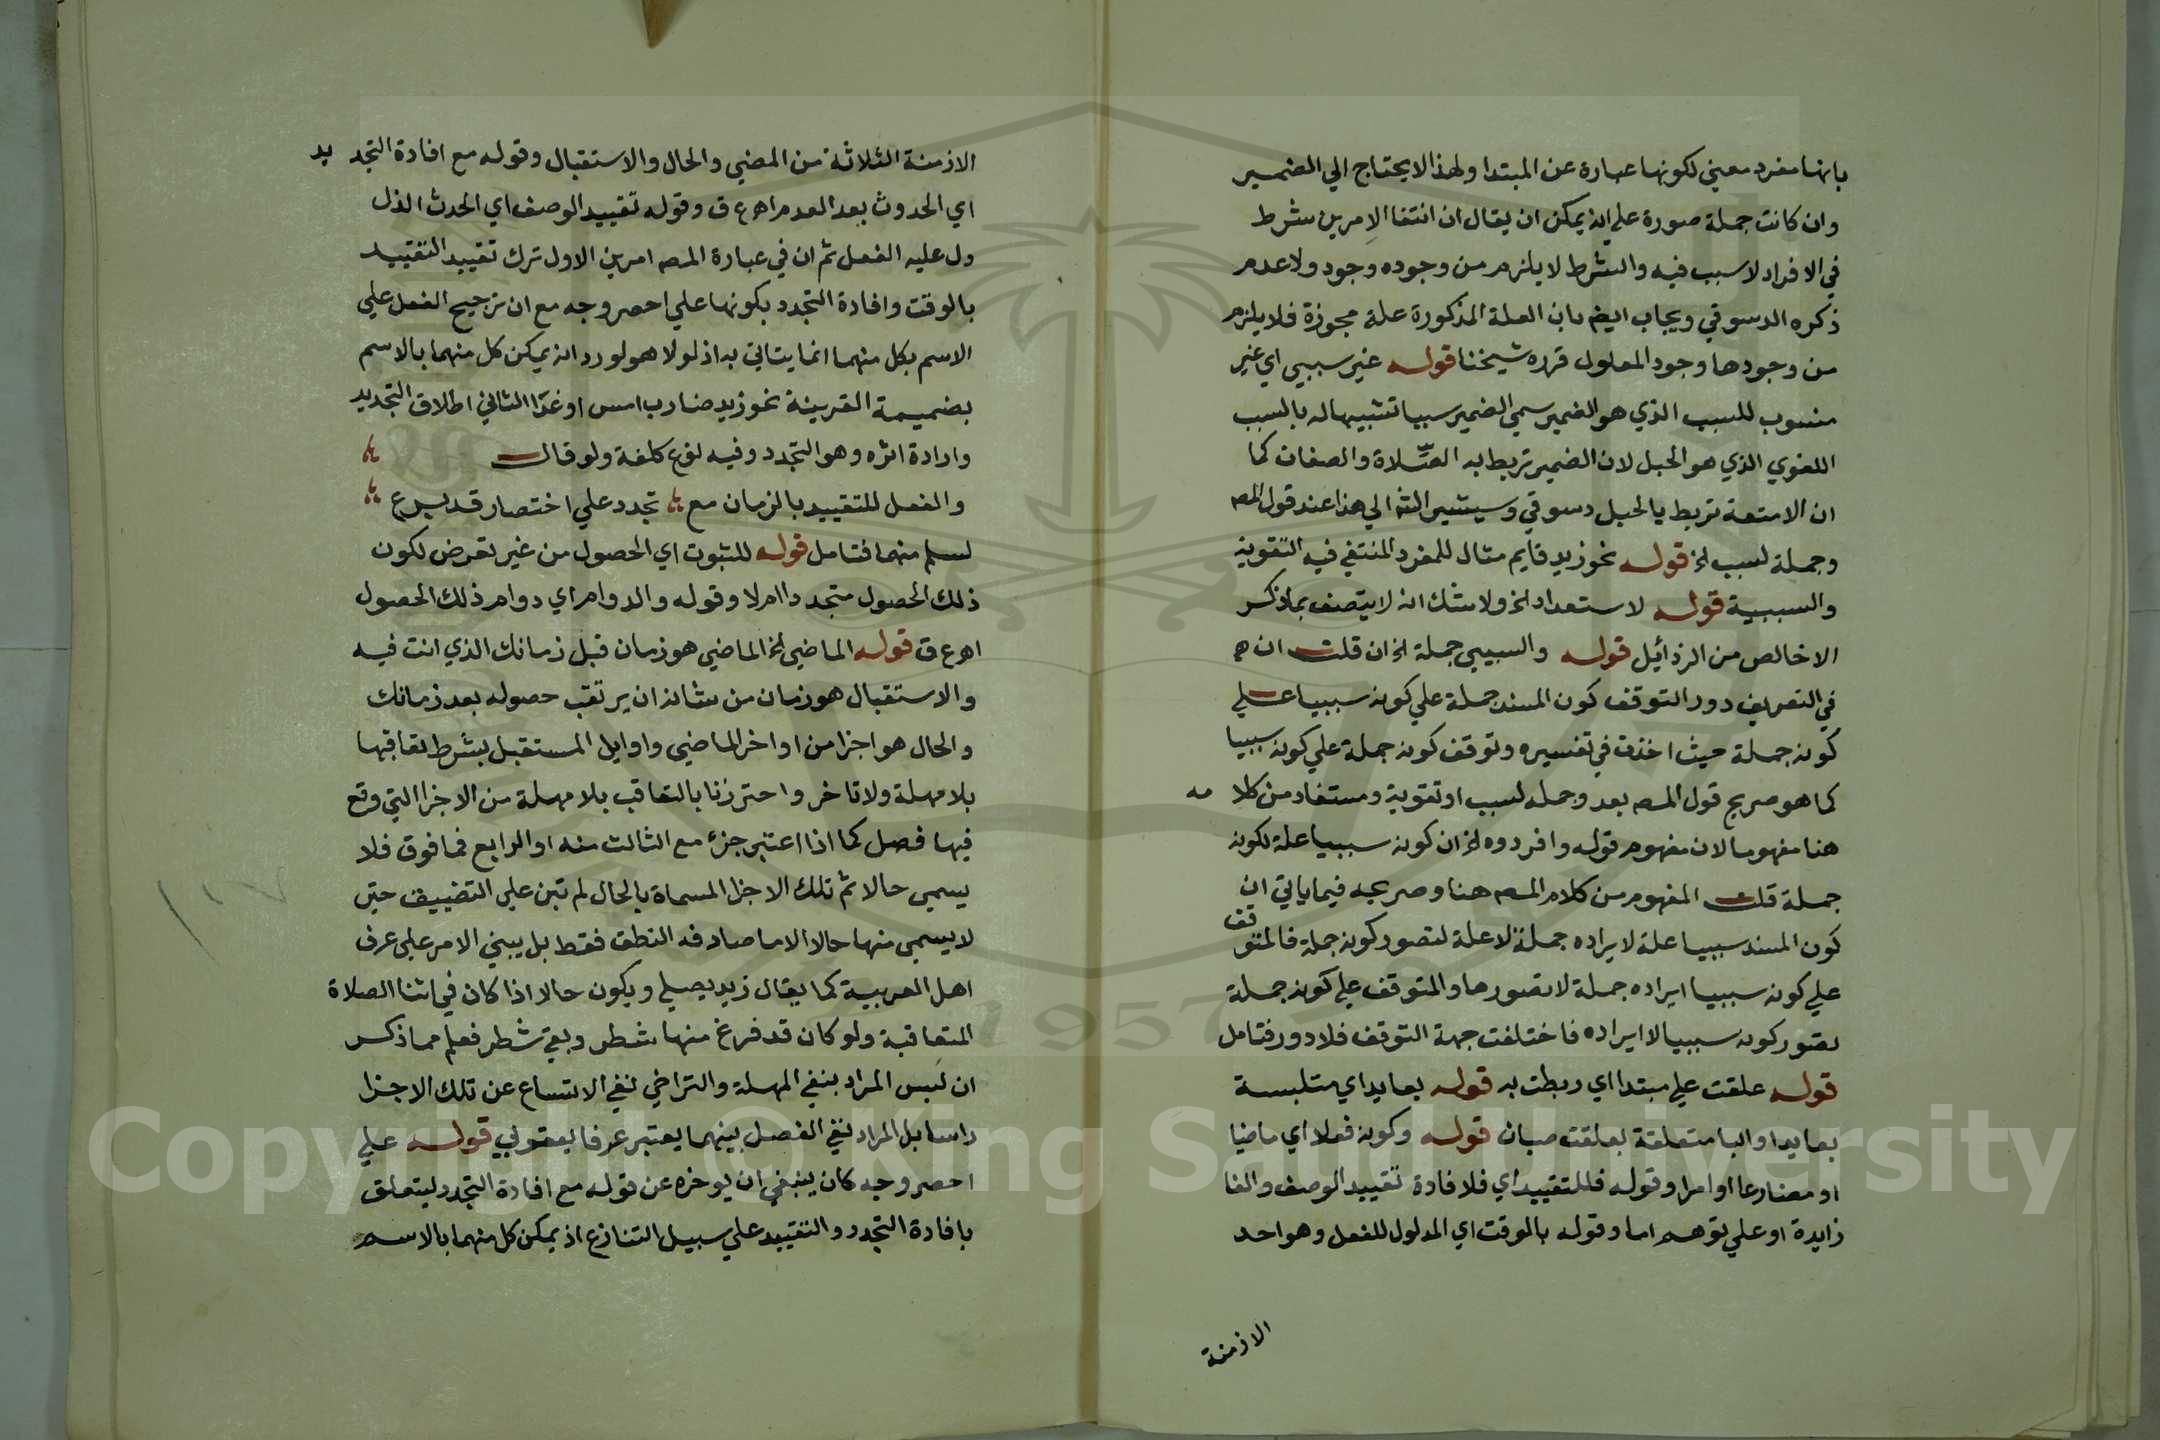 بانها مفرد معني لكونها عبارة عن المبتدا ولهذا لا يحتاج الي الضمير
وان كانت جملة صورة علي انه يمكن ان يقال ان انتفا الامرين شرط
في الافراد لا سبب فيه والشرط لا يلزم من وجوده وجود ولا عدم
ذكره الدسوقي ويجاب ايضم بان العلة المذكورة علة مجوزة فلا يلزم
من وجودها وجود المعلول قرره شيخنا قوله غير سببي اي غير
منسوب للسبب الذي هو الضمير سمي الضمير سببا تشبيها له بالسبب
اللغوي الذي هو الحبل لان الضمير تربط به الصلاة والصفات كما
ان الامتعة تربط بالحبل دسوقي وسيشير الشه الي هذا عند قول المص
وجملة لسبب الخ قوله نحو زيد قايم مثال للمفرد المنتفي فيه التقوية
والسببية قوله لاستعداد الخ ولا شك انه لا يتصف بما ذكر
الا خالص من الرذائيل قوله والسببي جملة الخ ان قلت ان
في التعريف دور التوقف كون المسند جملة علي كونه سببيا علي
كونه جملة حيث اخذت في تفسيره وتوقف كونه جملة علي كونه سببيا
كما هو صريح قول المص بعد وجمله لسبب او تقوية ومستفاد من كلا مه
هنا مفهوما لان مفهوم قوله وافردوه الخ ان كونه سببيا علة لكونه
جملة قلت المفهوم من كلام المص هنا وصريحه فيما ياتي ان
كون المسند سببيا علة لايراده جملة لا علة لتصور كونه جملة فالمتوقف
علي كونه سببيا ايراده جملة لا تصورها والمتوقف علي كونه جملة
تصور كونه سببيا لا ايراده فاختلفت جهة التوقف فلا دور فتامل
قوله علقت علي مبتدا اي ربطت به قوله بعايد اي متلبسة
بعايد او البا متعلقة بعلقت صبان قوله وكونه فعلا اي ماضيا
او مضارعا او امرا وقوله فللتقييد اي فلا فادة تقييد الوصف والفا
زايدة او علي توهم اما وقوله بالوقت اي المدلول للفعل وهو احد
الازمنة
الازمنة الثلاثة من المضي والحال والاستقبال وقوله مع افادة التجد يد
اي الحدوث بعد العدم اهـ ع ق وقوله تقييد الوصف اي الحدث الذل
دل عليه الفعل ثم ان في عبارة المص امرين الاول ترك تقييد التقييد
بالوقت وافادة التجدد بكونها علي احصر وجه مع ان ترجيح الفعل علي
الاسم بكل منهما انما يتاتي به اذ لولا هو لورد انه يمكن كل منهما بالاسم
بضميمة القرينة نحو زيد ضارب امس او غدا الثاني اطلاق التجديد
وارادة اثره وهو التجدد وفيه نوع كلفة ولو قال
والفعل للتقييد بالزمان مع تجدد علي اختصار قد يرع
لسلم منهما فتامل قوله للثبوت اي الحصول من غير تعرض لكون
ذلك الحصول متجددا ام لا وقوله والدوام اي دوام ذلك الحصول
اهـ ع ق قوله الماضي الخ الماضي هو زمان قبل زمانك الذي انت فيه
والاستقبال هو زمان من شانه ان يرتقب حصوله بعد زمانك
والحال هو اجزا من اواخر الماضي واوايل المستقبل بشرط تعاقبها
بلا مهلة ولا تاخر واحترزنا بالتعاقب بلا مهلة من الاجزا التي وقع
فيها فصل كما اذا اعتبر جزء مع الثالث منه او الرابع فما فوق فلا
يسمي حالا ثم تلك الاجزا المسماة بالحال لم تبن علي التضييف حتي
لا يسمي منها حالا الا ما صادفه النطق فقط بل يبني الامر علي عرف
اهل العربية كما يقال زيد يصلي ويكون حالا اذا كان في اثنا الصلاة
المتعاقبة ولو كان قد فرغ منها شطر وبقي شطر فعلم مما ذكر
ان ليس المراد بنفي المهلة والتراخي نفي الاتساع عن تلك الاجزا
راسا بل المراد نفي الفصل بينهما يعتبر عرفا يعقوبي قوله علي
احصر وجه كان ينبغي ان يوخره عن قوله مع افادة التجدد ليتعلق
بافادة التجدد والتقييد علي سبيل التنازع اذ يمكن كل منهما بالاسم
1957
Copyright © King Saud University